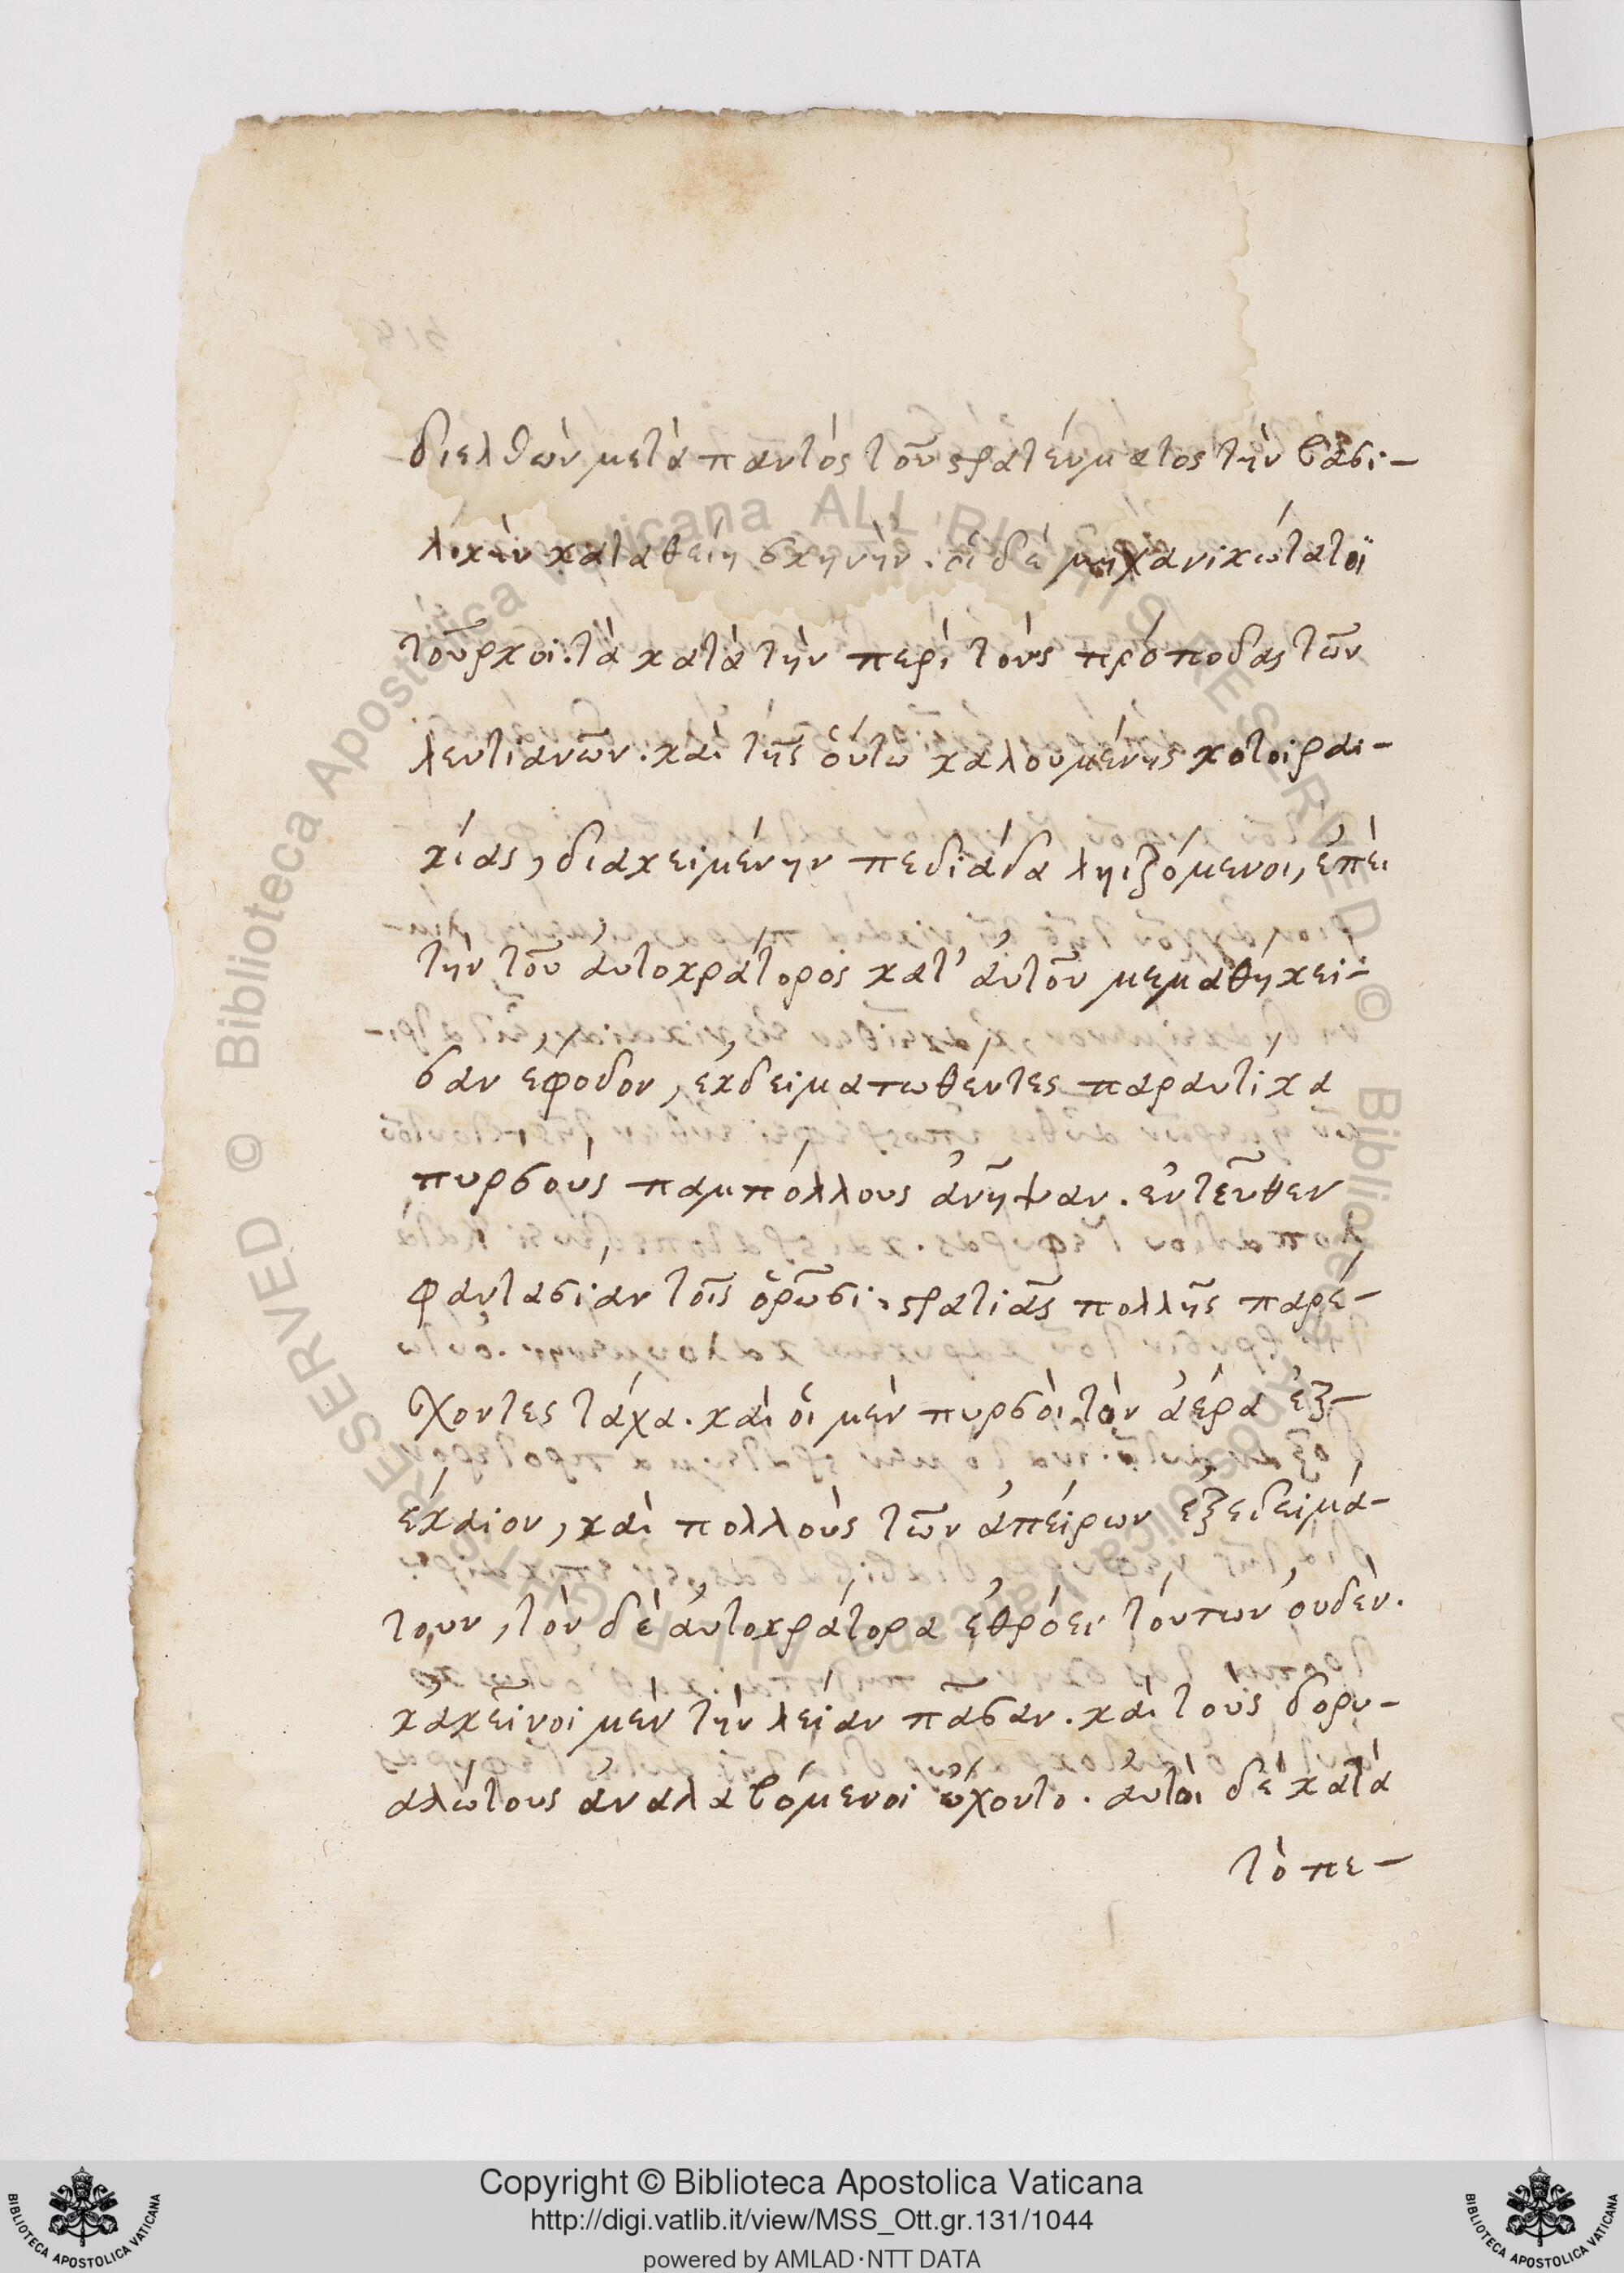 διελθὼν μετὰ παντὸς τοῦ στρατεύματος τὴν βασι-
λικὴν καταθείη σκηνὴν. οἱ δὲ μηχανικώτατοϊ
τοῦρκοι. τὰ κατὰ τὴν περὶ τοὺς πρόποδας τῶν
λεντιανῶν. καὶ τῆς ὅυτω καλουμένης κοτοιραι-
κίας, διακειμένην πεδιάδα ληιζόμενοι, ἐπεὶ
τὴν τοῦ ἀυτοκράτορος κατ' ἀυτοῦ μεμαθήκει-
σαν ἔφοδον, ἐκδειματωθέντες παραυτίκα
πυρσοὺς παμπόλλους ἀνῆψαν. ἐντεῦθεν
φαντασίαν τοῖς ὁρῶσι. στρατιᾶς πολλῆς παρέ-
χοντες τάχα. καὶ ὁι μὲν πυρσὸι τὸν ἀέρα ἐξ-
έκαιον, καὶ πολλοὺς τῶν ἀπείρων ἐξεδειμά-
τουν, τὸν δὲ ἀυτοκράτορα ἐθρόει τόυτων ὀυδὲν.
κἀκεῖνοι μὲν τὴν λείαν πᾶσαν. κὰι τοὺς δορυ-
αλώτους ἀναλαβόμενοι ὤχοντο. ἀυτὸι δὲ κατὰ
τὸ πε-
Copyright © Biblioteca Apostolica Vaticana
http://digi.vatlib.it/view/MSS_Ott.gr.131/1044
powered by AMLAD·NTT DATA
BIBLIOTECA APOSTOLICA VATICANA
BIBLIOTECA APOSTOLICA VATICANA